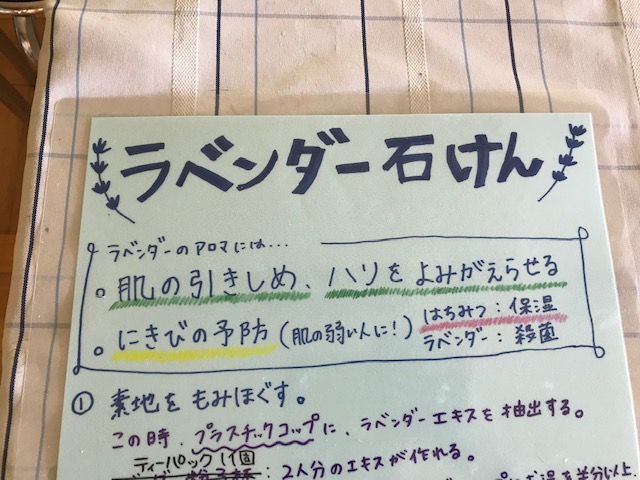 ラベンダー石けん
ラベンダーのアロマには…
。肌の引きしめ、ハリをよみがえらせる
。にきびの予防(肌の弱い人に!)
はちみつ:保湿
ラベンダー:殺菌
① 素地をもみほぐす。
この時、プラスチックコップに、ラベンダーエキスを抽出する。
ティーパック1個
:2人分のエキスが作れる。